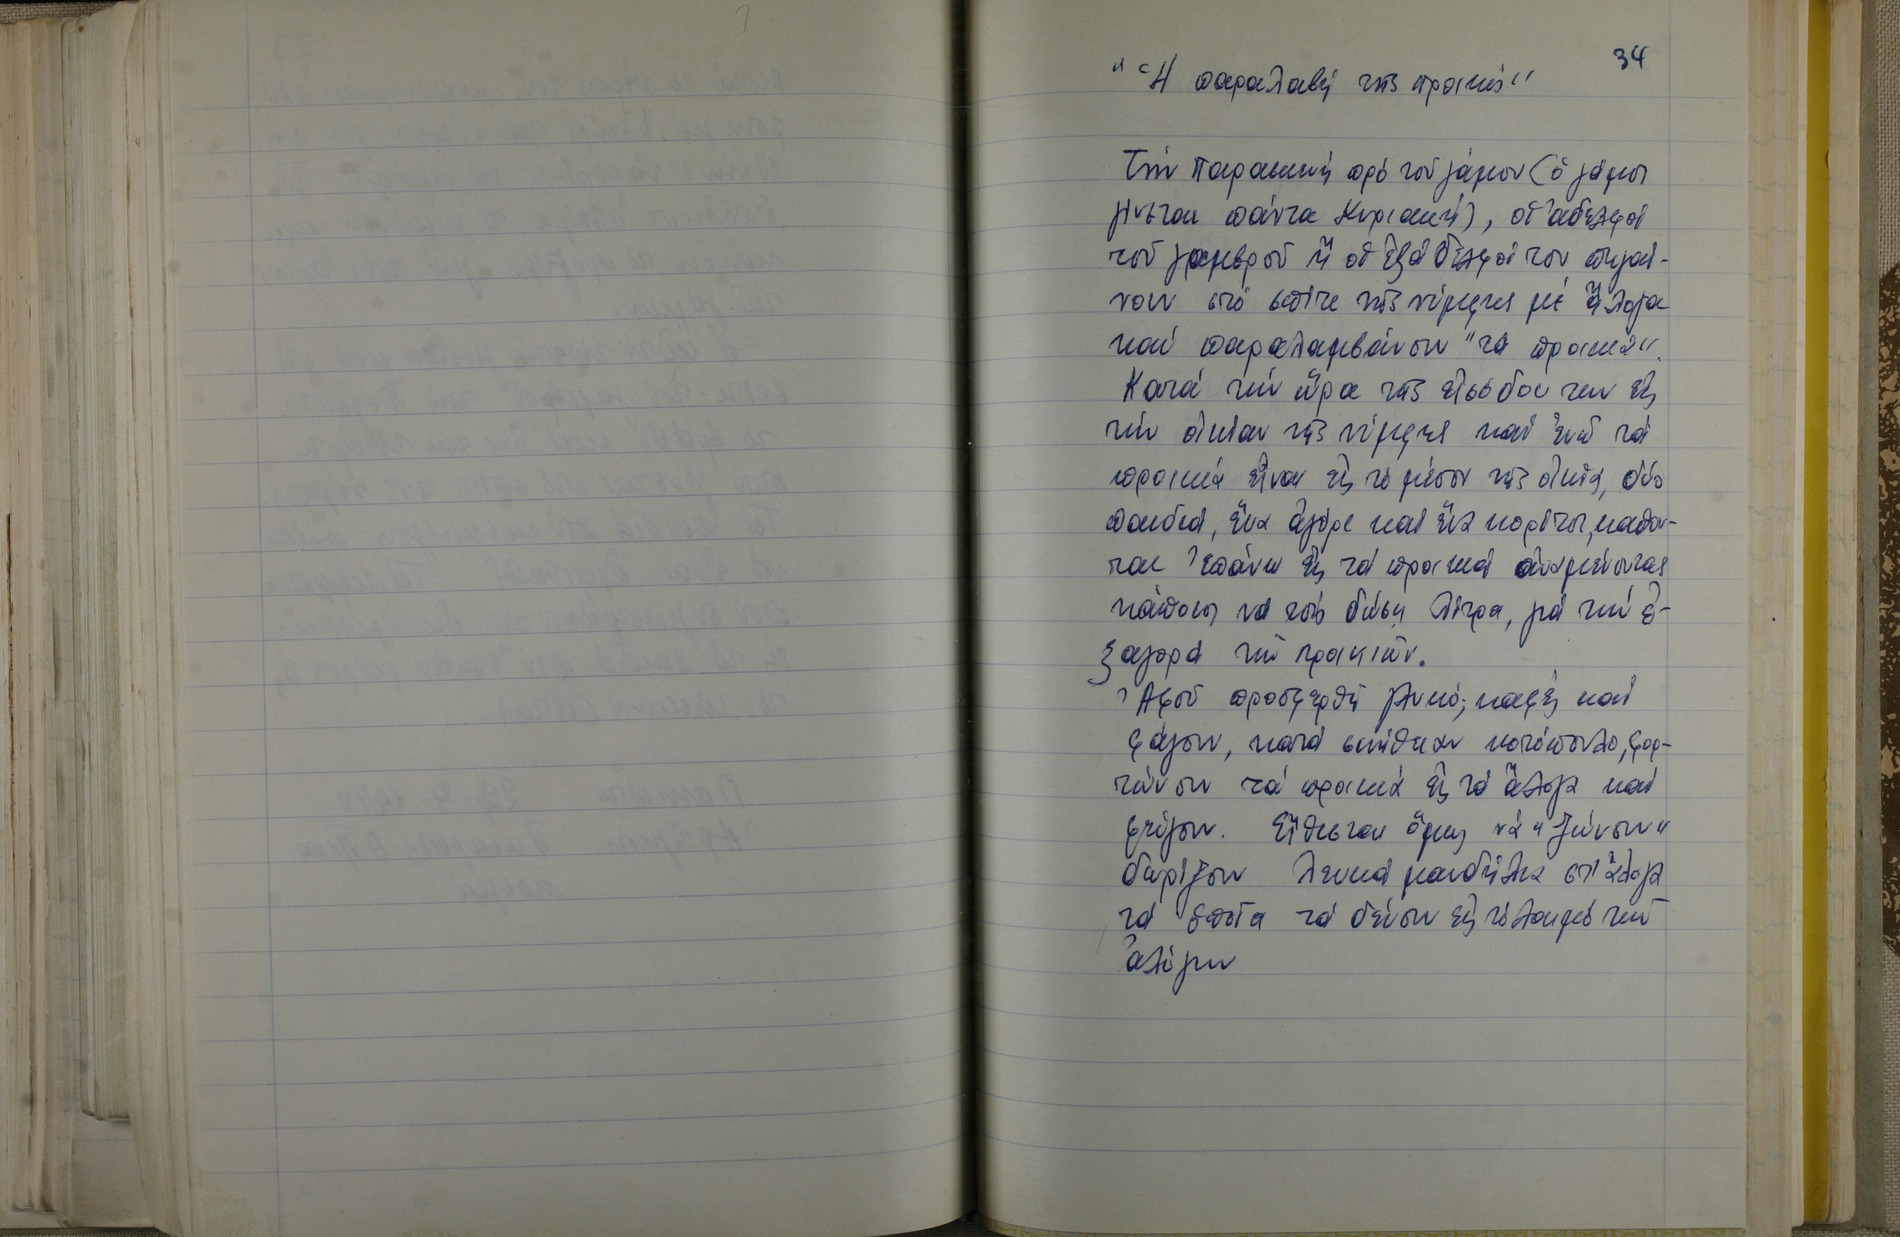 34
"Ἡ παραλαβή τῆς προικός"
Τήν Παρασκευή πρό τοῦ γάμου (ὁ γάμος
γίνεται πάντα Κυριακή), οἱ ἀδελφοί
τοῦ γαμβροῦ ἤ οἱ ἐξάδελφοί του πηγαί-
νουν στό σπίτι τῆς νύμφης μέ ἄλογα
καί παραλαμβάνουν "τά προικιά".
Κατά τήν ὥρα τῆς εἰσόδου των εἰς
τήν οἰκίαν τῆς νύμφης καί ἐνῶ τά
προικιά εἶναι εἰς τό μέσον τῆς οἰκίας, δύο
παιδιά, ἕνα ἀγόρι καί ἕνα κορίτσι, κάθον-
ται ἐπάνω εἰς τά προικιά ἀναμένοντας
κάποιος νά τούς δώση λίτρα, γιά τήν ἐ-
ξαγορά τῶν προικιῶν.
Ἀφοῦ προσφερθῆ γλυκό, καφές καί
φάγουν, κατά συνήθειαν κοτόπουλο, φορ-
τώνουν τά προικιά εἰς τά ἄλογα καί
φεύγουν. Εἴθισται ὅμως νά "ζώνουν"
δωρίζουν λευκά μανδήλια στ' ἄλογα
τά ὁποῖα τά δένουν εἰς τό λαιμό τῶν
ἀλόγων